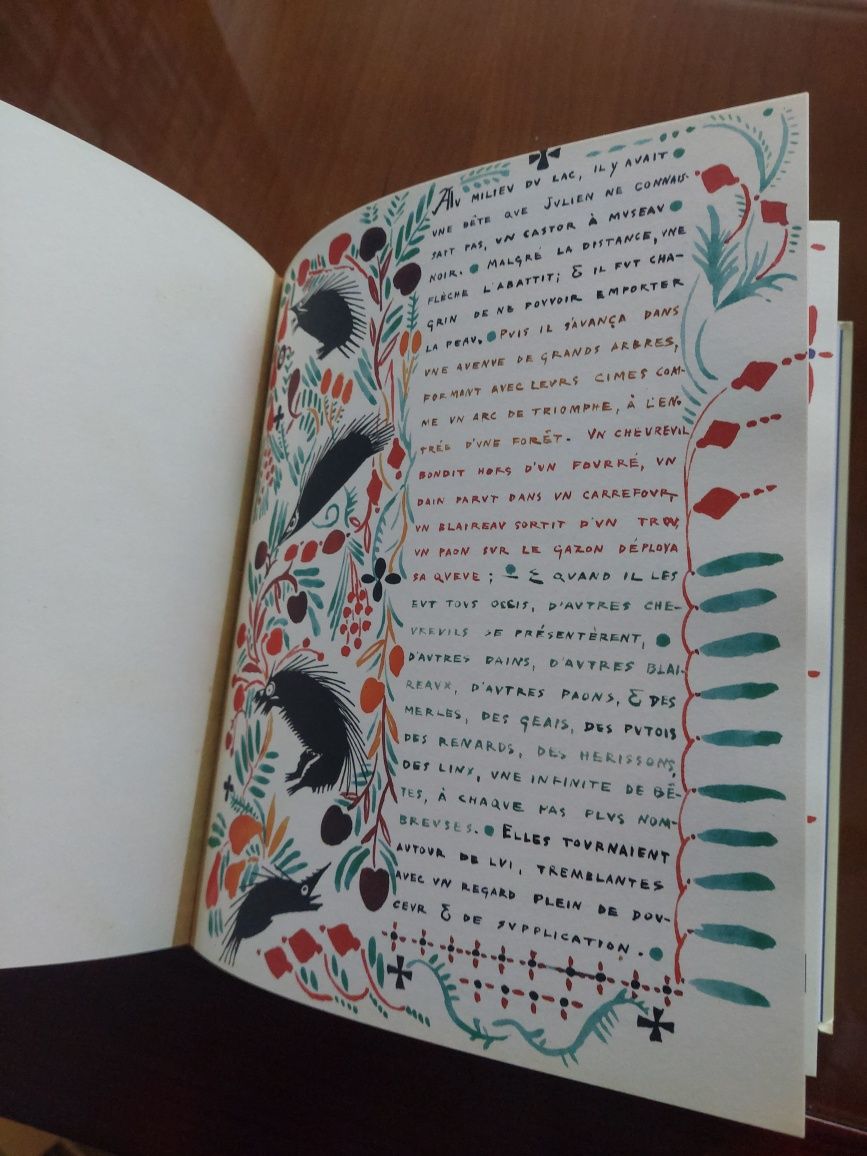 AU MILIEV DV LAC, IL Y AVAIT
VNE BÊTE QVE JULIEN NE CONNAIS-
SAIT PAS, VN CASTOR À MVSEAV
NOIR. MALGRÉ LA DISTANCE, VNE
FLÈCHE L'ABATTIT; & IL FVT CHA-
GRIN DE NE POVVOIR EMPORTER
LA PEAV. PVIS IL S'AVANÇA DANS
VNE AVENVE DE GRANDS ARBRES,
FORMANT AVEC LEVRS CIMES COM-
ME VN ARC DE TRIOMPHE, À L'EN-
TRÉE D'VNE FORÊT. VN CHEVREVIL
BONDIT HORS D'VN FOVRRÉ, VN
DAIN PARVT DANS VN CARREFOVR,
VN BLAIREAV SORTIT D'VN TROV,
VN PAON SVR LE GAZON DÉPLOYA
SA QVEVE; — & QVAND IL LES
EVT TOVS OCCIS, D'AVTRES CHE-
VREVILS SE PRÉSENTÈRENT,
D'AVTRES DAINS, D'AVTRES BLAI-
REAVX, D'AVTRES PAONS, & DES
MERLES, DES GEAIS, DES PVTOIS
DES RENARDS, DES HERISSONS,
DES LINX, VNE INFINITE DE BÊ-
TES, À CHAQVE PAS PLVS NOM-
BREVSES. ELLES TOVRNAIENT
AVTOVR DE LVI, TREMBLANTES
AVEC VN REGARD PLEIN DE DOV-
CEVR & DE SVPPLICATION.